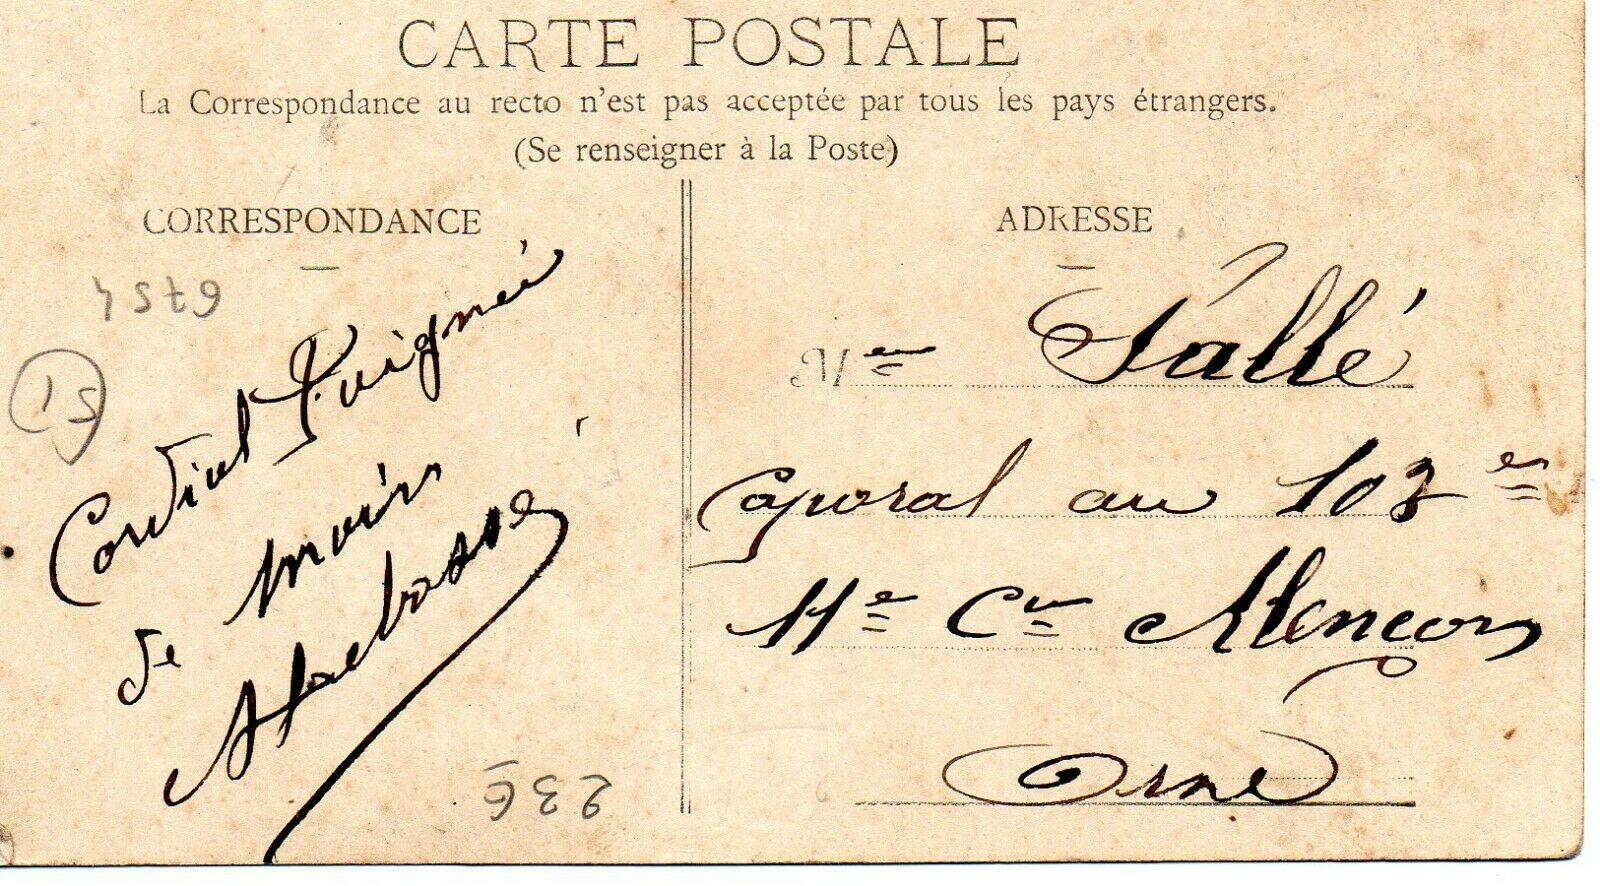 CARTE POSTALE
La Correspondance au recto n'est pas acceptée par tous les pays étrangers.
(Se renseigner à la Poste)
CORRESPONDANCE
6754
15
Cordial Poignée
de main
236
ADRESSE
M en Sallé
Caporal au 103 e
11 e Cie Alençon
Orne